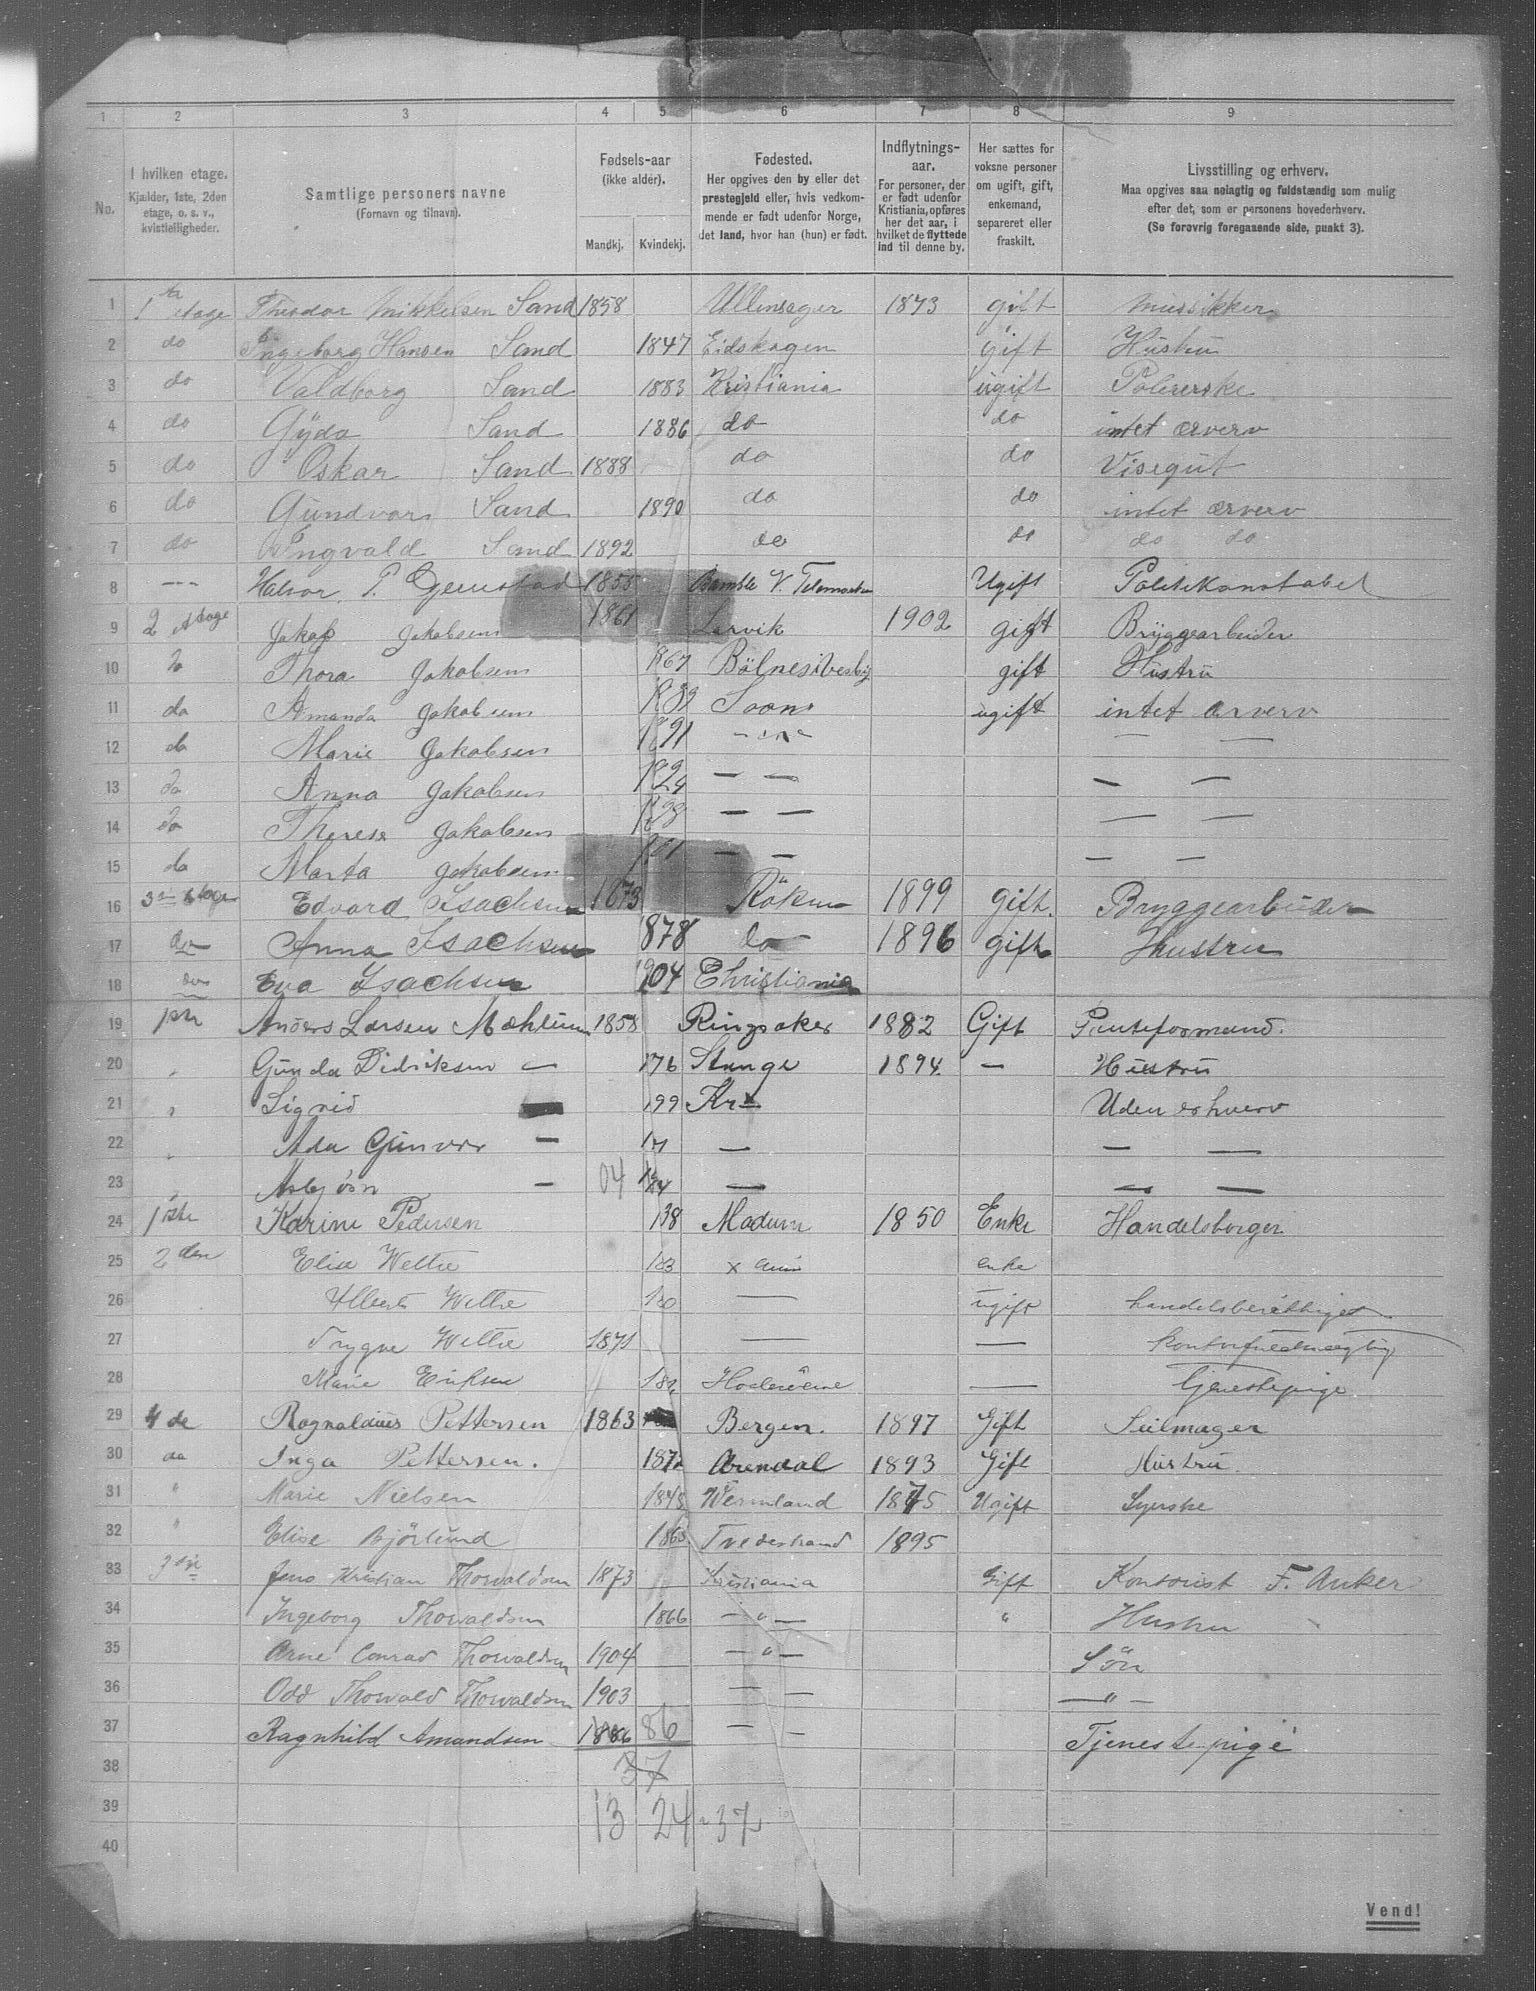 1 2 3 4 5 6 7 8 9
No.
I hvilken etage.
Kjælder, 1ste, 2den
etage, o. s. v.,
kvistleiligheder.
Samtlige personers navne
(Fornavn og tilnavn).
Fødsels-aar
(ikke alder).
Mandkj. Kvindekj.
Fødested.
Her opgives den by eller det
prestegjeld eller, hvis vedkom-
mende er født udenfor Norge,
det land, hvor han (hun) er født.
Indflytnings-
aar.
For personer, der
er født udenfor
Kristiania, opføres
her det aar, i
hvilket de flyttede
ind til denne by.
Her sættes for
voksne personer
om ugift, gift,
enkemand,
separeret eller
fraskilt.
Livsstilling og erhverv.
Maa opgives saa nøiagtig og fuldstændig som mulig
efter det, som er personens hovederhverv.
(Se forøvrig foregaaende side, punkt 3).
1 1 etage Theodor Mikkelsen Sand 1858 Ullensager 1873 gift Mussikker
2 do Ingeborg Hansen Sand 1847 Eidskogen gift Hustru
3 do Valdborg Sand 1883 Kristiania ugift Polererske
4 do Gyda Sand 1886 do do intet ærverv
5 do Oskar Sand 1888 do do Visegut
6 do Gundvor Sand 1890 do do intet ærverv
7 do Ingvald Sand 1892 do do do do
8 --- Halvor P. 1855 Bamble V. Telemarken Ugift Politikonstabel
9 2 Etage Jakob Jakobsen 1861 Larvik 1902 gift Bryggearbeider
10 do Thora Jakobsen 1867 gift Hustru
11 do Amanda Jakobsen 1889 Soon ugift intet ærverv
12 do Marie Jakobsen 1891 — — — —
13 do Anna Jakobsen — — — —
14 do Therese Jakobsen — — — —
15 do Marta Jakobsen — — — —
16 3 etage Edvard Isachsen 1873 Röken 1899 gift. Bryggearbeider
17 do Anna Isachsen 1878 do 1896 gift Hustru
18 do Eva Isachsen 1904 Christiania
19 1ste Anders Larsen Mæhlum 1858 Ringsaker 1882 Gift
20 " Gunda Didriksen — 176 Stange 1894. — Hustru
21 " Sigrid — 199 Kr Uden erhverv
22 " Ada Gunvor — — — —
23 " Asbjörn — 04 — — —
24 1ste Karine Pedersen 138 Modum 1850 Enke Handelsborger
25 2den Elise Weltre 183 enke
26 Weltre — ugift handelsberettiget
27 Trygve Weltre 1871 — —
28 Marie Eriksen — Tjenestepige
29 4de Ragnaldius Pettersen 1863 Bergen. 1897 Gift Seilmager
30 do Inga Pettersen. 1872 Arendal 1893 Gift Hustru.
31 " Marie Nielsen 1848 Wermland 1875 Ugift Syerske
32 " Elise Björlund 1863 Tvedestrand 1895
33 3die Jens Kristian Thorvaldsen 1873 Kristiania Gift Kontorist F. Anker
34 Ingeborg Thorvaldsen 1866 — " — " Hustru
35 Arne Conrad Thorvaldsen 1904 — " — Sön
36 Odd Thorvald Thorvaldsen 1903 — — — " —
37 Ragnhild Amundsen 1886 86 — — Tjenestepige
38 37
39 13 24 - 37
40
Vend!